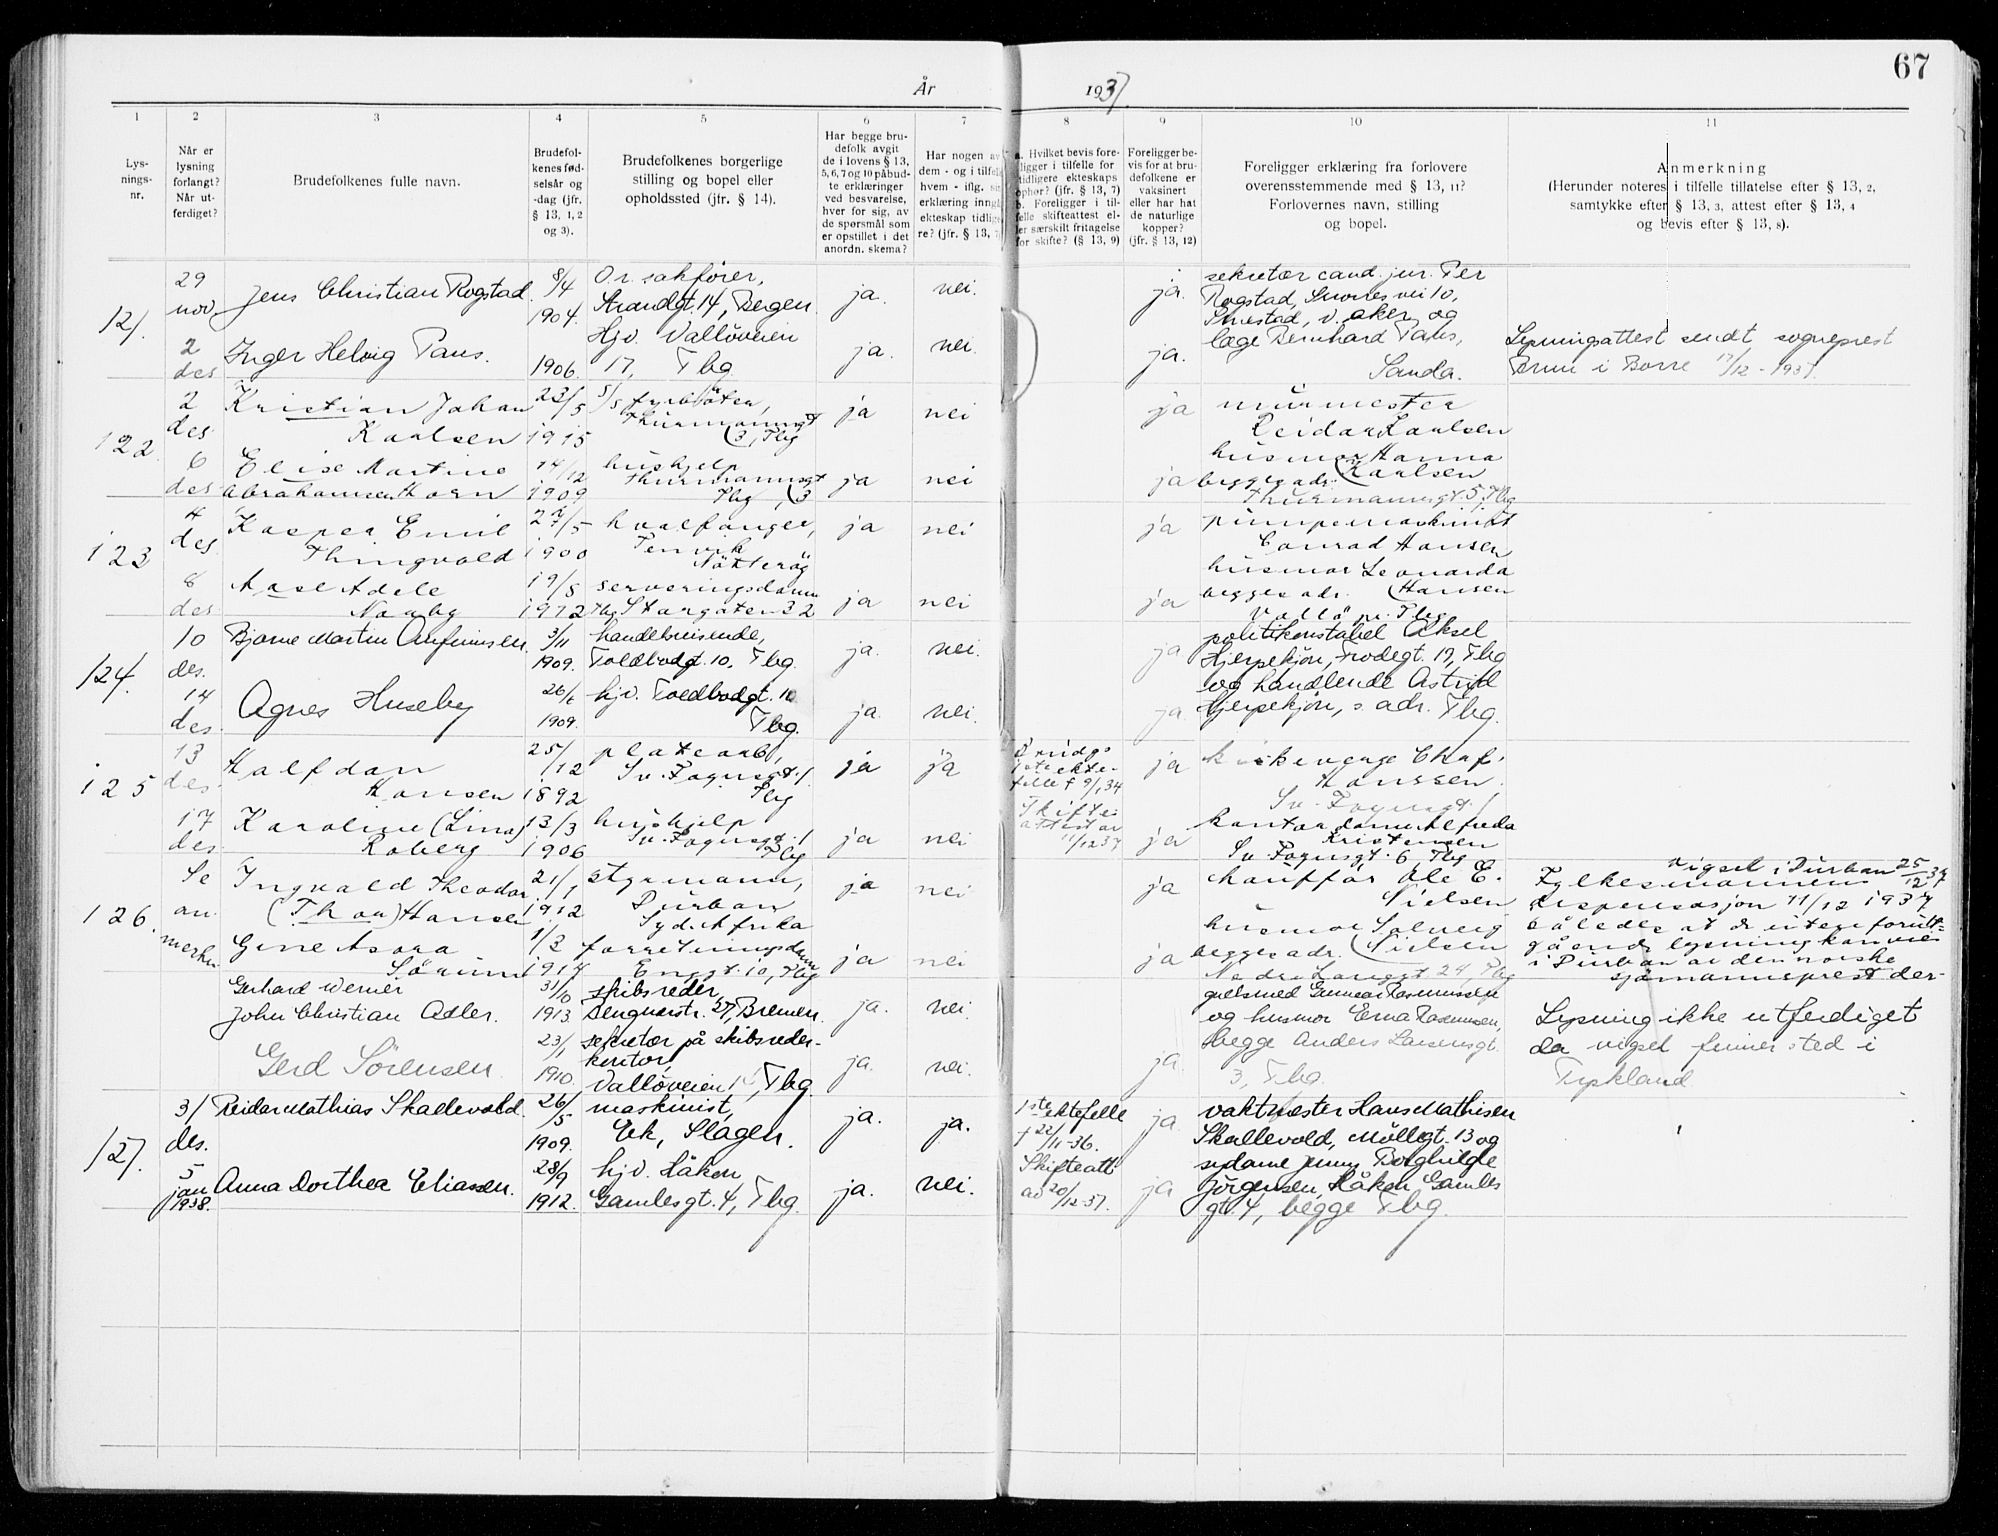 67
År 1937.
1 2 3 4 5 6 7 8 9 10 11
Lys-
nings-
nr.
Når er
lysning
forlangt?
Når ut-
ferdiget?
Brudefolkenes fulle navn.
Brudefol-
kenes fød-
selsår og
-dag (jfr.
§ 13, 1, 2
og 3).
Brudefolkenes borgerlige
stilling og bopel eller
opholdssted (jfr. § 14).
Har begge bru-
defolk avgit
de i lovens § 13,
5, 6, 7 og 10 påbud-
te erklæringer
ved besvarelse,
hver for sig, av
de spørsmål som
er opstillet i det
anordn. skema?
Har nogen av
dem - og i tilfelle
hvem - iflg. sin
erklæring inngå
ekteskap tidlige-
re? (jfr. § 13, 7)
a. Hvilket bevis fore-
ligger i tilfelle for
tidligere ekteskaps
ophør? (jfr. § 13, 7)
b. Foreligger i til-
felle skifteattest el-
ler særskilt fritagelse
for skifte? (§ 13, 9)
Foreligger be-
vis for at bru-
defolkene er
vaksinert
eller har hat
de naturlige
kopper?
(jfr. § 13, 12)
Foreligger erklæring fra forlovere
overensstemmende med § 13, 11?
Forlovernes navn, stilling
og bopel.
Anmerkning
(Herunder noteres i tilfelle tillatelse efter § 13, 2,
samtykke efter § 13, 3, attest efter § 13, 4
og bevis efter § 13, 8).
121.
29
nov
Jens Christian Rogstad.
8/4
1904.
O.r. sakfører,
Strandgt. 14, Bergen
ja. nei. ja.
sekretær cand. jur. Per
Rogstad, Snorres vei 10,
Smestad, v. aker og
2
des
Inger Helvig Paus.
1906.
Hjv. Vallöveien
17, Tbg
ja. nei. ja.
læge Bernhard Paus,
Sanda.
Lysningsattest sendt sogneprest
i Borre 17/12 - 1937.
122
2
des
Kristian Johan
Karlsen
23/5
1915
s/s fyrböter,
Thurmannsgt
3, Tbg
ja nei ja
murmester
Reidar Karlsen
husmor Hanna
Karlsen
6
des
Elise Martine
Abrahamsen Horn
14/12
1909
hushjelp
Thurmannsgt
Tbg, 3
ja nei ja
begges adr.
Thurmannsgt. 5, Tbg
123
4
des
Kasper Emil
Thingvold
27/5
1900
hvalfanger,
Tenvik
Nötteröy
ja nei ja
pumpemaskinist
Conrad Hansen
husmor Leonarda
Hansen
8
des
Aase Adele
Naaby
19/5
1912
serveringsdame
Tbg, Storgaten 32
ja nei ja
begges adr.
Vallö pr. Tbg
124.
10
des.
Bjarne Martin Anfinnsen
3/11
1909.
handelsreisende,
Toldbodgt. 10, Tbg.
ja. nei. ja
politikonstabel Aksel
Hjerpekjøn, Frodegt. 19, Tbg
14
des.
Agnes Huseby
26/6
1909.
hjv. Toldbodgt. 10
Tbg.
ja. nei. ja.
og handlende Astrid
Hjerpekjøn, s. adr. Tbg.
125
13
des
Halfdan
Hansen
25/12
1892
platearb,
Sv. Foynsgt. 1
Tbg
ja ja
ekte-
felle † 9/1 34
Skifte-
attest av
11/12 37
ja
kirkeverge Chaf.
Hanssen
Sv. Foynsgt. 1
17
des.
Karoline (Lina)
Roberg
13/3
1906
hushjelp
Sv. Foynsgt. 1
Tbg
ja nei ja
kontordame Alfreda
Kristensen
Sv. Foynsgt. 6, Tbg
126.
Se
an-
merkn
Ingvald Theodor
(Thor) Hansen
21/1
1912
styrmann,
Durban
Syd. Afrika
ja nei ja
kauffør Ole E.
Nielsen
husmor Solveig
Nielsen
vigsel i Durban 25/12 37
Fylkesmannens
dispensasjon 11/12 1937
således at de uten forutt-
gående lysning kan vies
i Durban av den norske
sjømannsprest der-
Gine Asora
Sörum
1/2
1914
forretningsdame
Enggt. 10, Tbg
ja nei ja
begges adr.
Nedre Langgt 24, Tbg
Gerhard Werner
John Christian Adler.
31/10
1913.
skibsreder
27, Bremen.
ja. nei.
gullsmed Gunnar Rasmussen
og husmor Erna Rasmussen,
begge Anders Larsensgt.
3, Tbg.
Lysning ikke utferdiget
da vigsel finner sted i
Tyskland
Gerd Sörensen.
23/1
1910.
sekretær på skibsreder-
kontor,
Vallöveien 1, Tbg.
ja. nei. ja.
127.
31
des.
Reidar Mathias Skallevold.
26/5
1909.
maskinist,
Eik, Slagen.
ja. ja.
1ste ektefelle
† 22/11-36.
Skifteatt
av 20/12-37.
ja.
vaktmester Hans Mathisen
Skallevold, Møllegt. 13 og
5
jan
1938.
Anna Dorthea Eliassen.
28/9
1912.
hjv. Håkon
Gamlesgt. 4, Tbg.
ja. nei. ja
sydame Jenny Borghilde
Jörgensen, Håkon Gamles
gt. 4, begge Tbg.